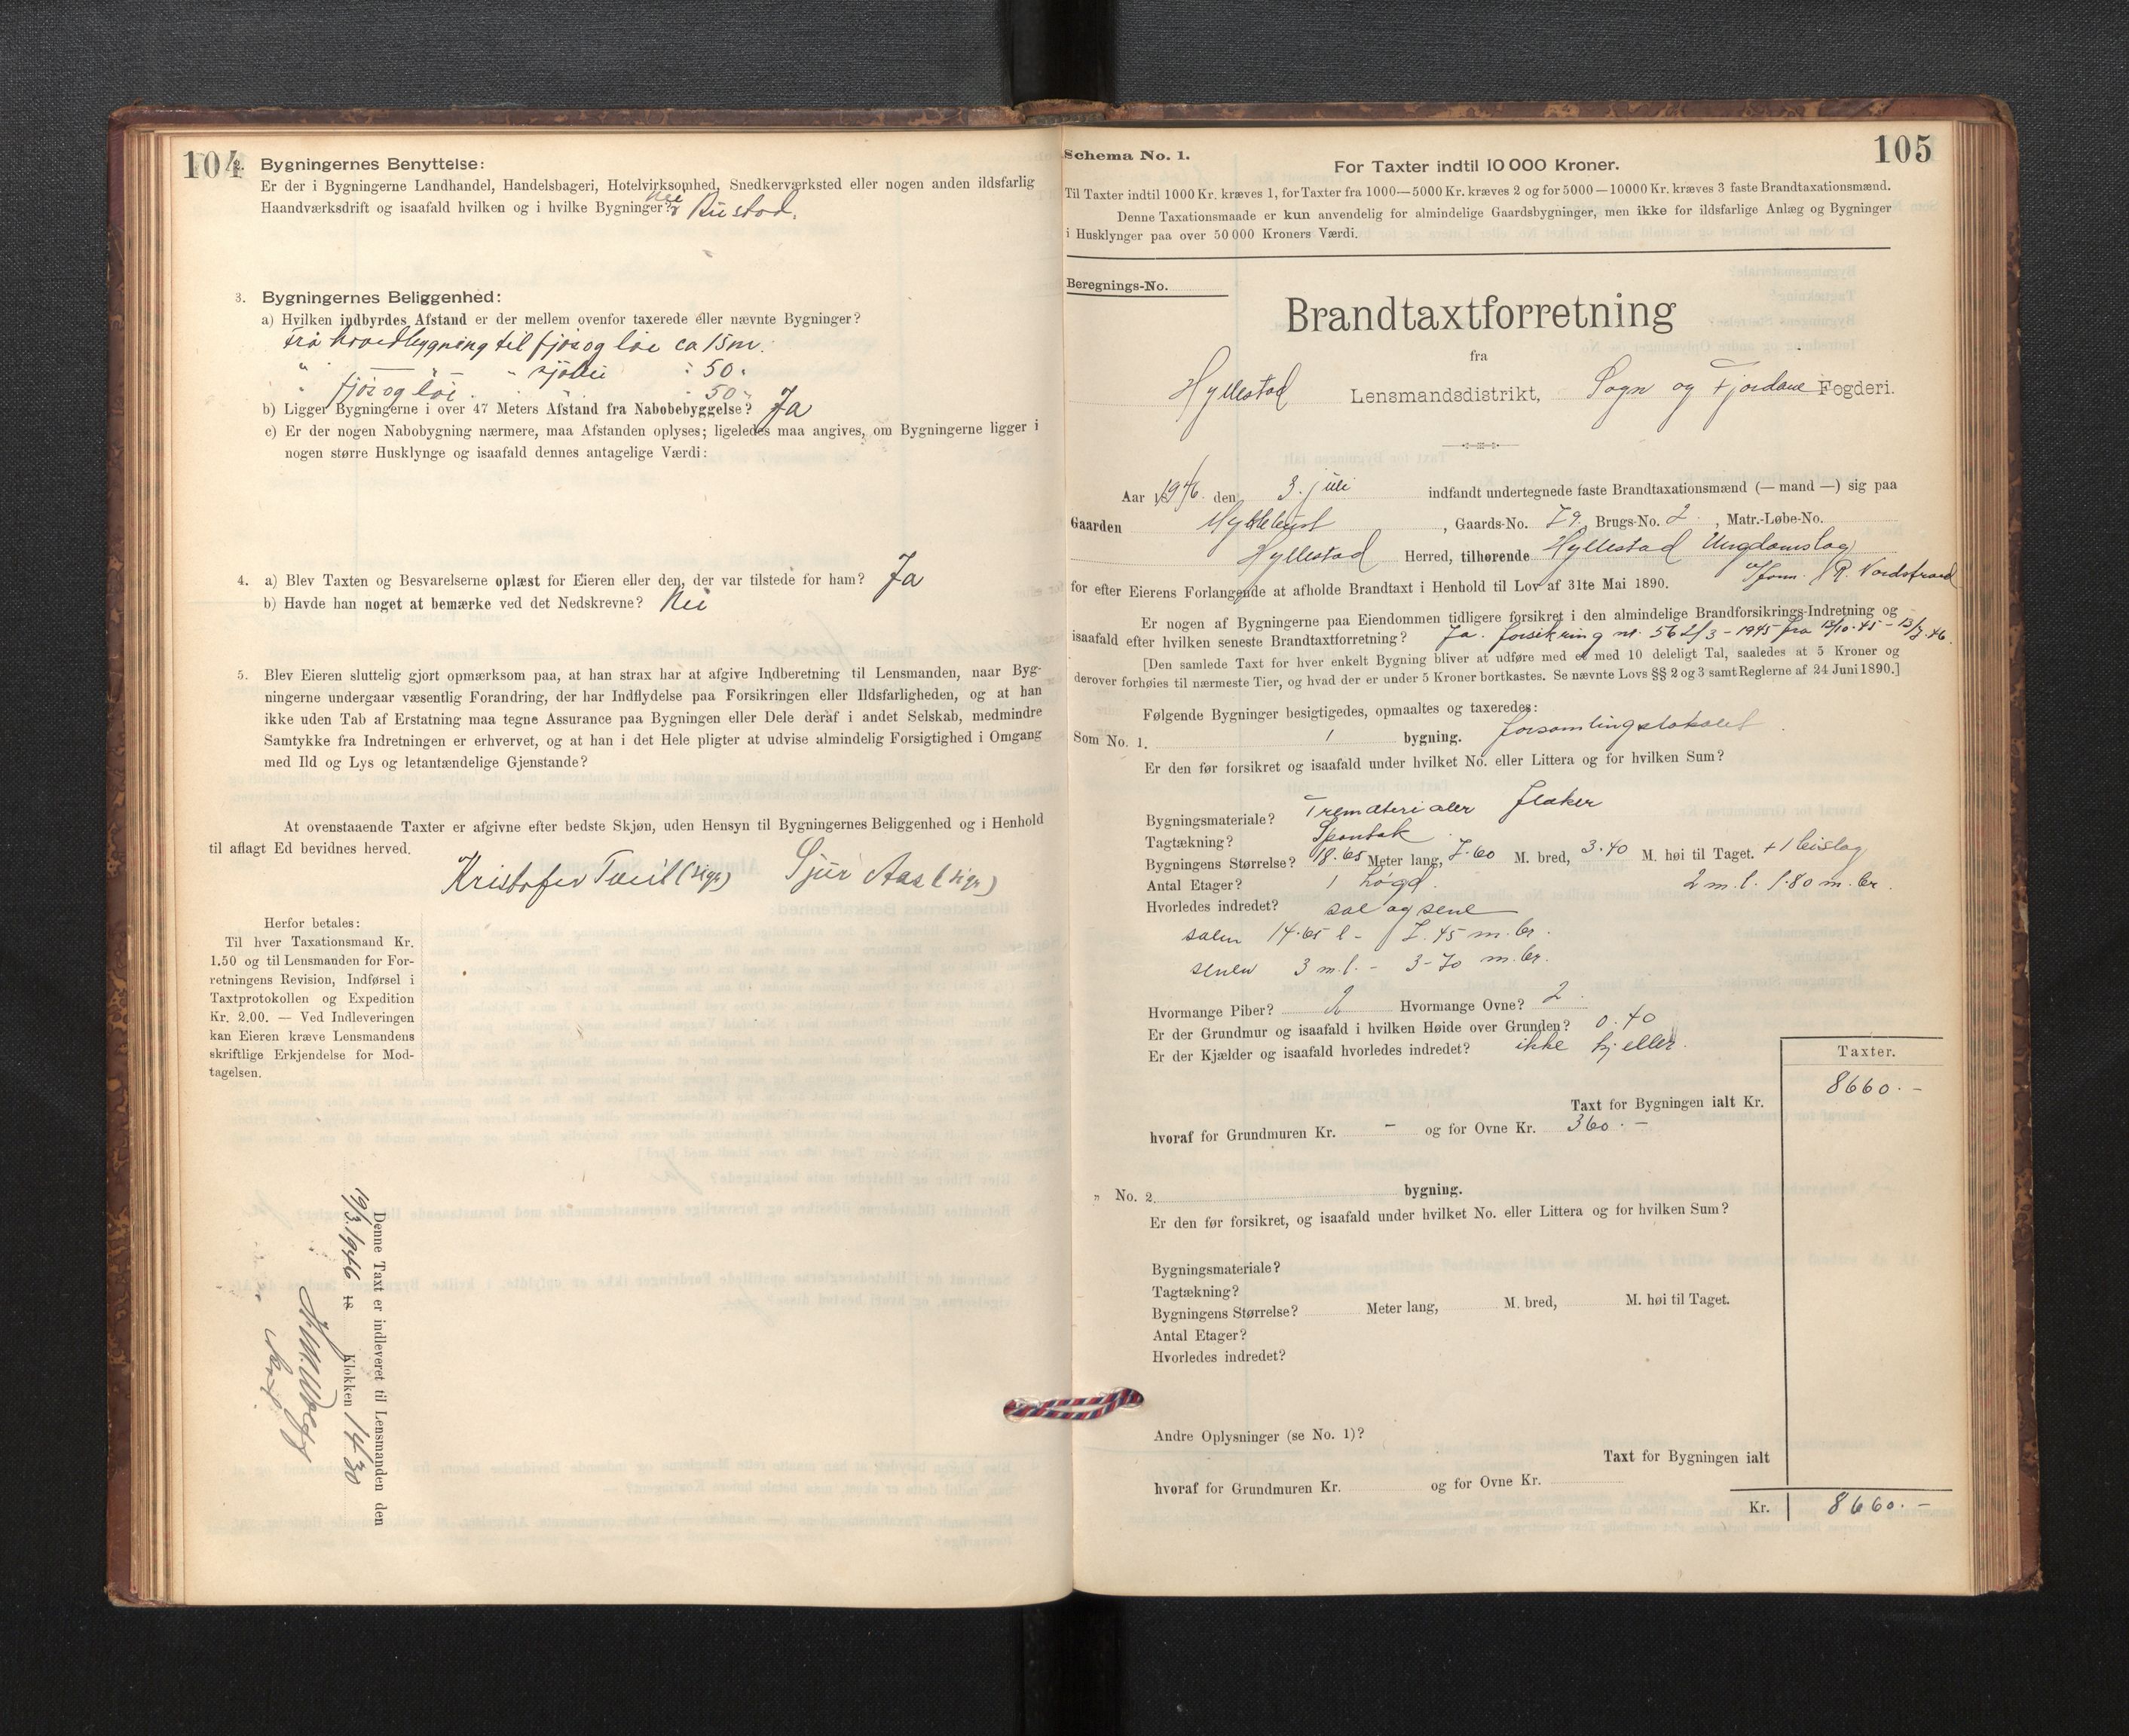 104
2. Bygningernes Benyttelse:
Er der i Bygningerne Landhandel, Handelsbageri, Hotelvirksomhed, Snedkerværksted eller nogen anden ildsfarlig
Haandværksdrift og isaafald hvilken og i hvilke Bygninger? Nei
3. Bygningernes Beliggenhed:
a) Hvilken indbyrdes Afstand er der mellem ovenfor taxerede eller nævnte Bygninger?
Frå hovedbygning til fjøs og løe ca 15 m.
" — " sjøbui : 50 "
" fjøs og løe " " 50 "
b) Ligger Bygningerne i over 47 Meters Afstand fra Nabobebyggelse? Ja
c) Er der nogen Nabobygning nærmere, maa Afstanden oplyses; ligeledes maa angives, om Bygningerne ligger i
nogen større Husklynge og isaafald dennes antagelige Værdi:
4. a) Blev Taxten og Besvarelserne oplæst for Eieren eller den, der var tilstede for ham? Ja
b) Havde han noget at bemærke ved det Nedskrevne? Nei
5. Blev Eieren sluttelig gjort opmærksom paa, at han strax har at afgive Indberetning til Lensmanden, naar Byg-
ningerne undergaar væsentlig Forandring, der har Indflydelse paa Forsikringen eller Ildsfarligheden, og at han
ikke uden Tab af Erstatning maa tegne Assurance paa Bygningen eller Dele deraf i andet Selskab, medmindre
Samtykke fra Indretningen er erhvervet, og at han i det Hele pligter at udvise almindelig Forsigtighed i Omgang
med Ild og Lys og letantændelige Gjenstande?
At ovenstaaende Taxter er afgivne efter bedste Skjøn, uden Hensyn til Bygningernes Beliggenhed og i Henhold
til aflagt Ed bevidnes herved.
Kristofer Tveit (sign) Sjur Aas (sign)
Herfor betales:
Til hver Taxationsmand Kr.
1.50 og til Lensmanden for For-
retningens Revision, Indførsel i
Taxtprotokollen og Expedition
Kr. 2.00. — Ved Indleveringen
kan Eieren kræve Lensmandens
skriftlige Erkjendelse for Mod-
tagelsen.
Denne Taxt er indleveret til Lensmanden den
19/3 1946 18 Klokken 14 30
105
Schema No. 1.
For Taxter indtil 10 000 Kroner.
Til Taxter indtil 1000 Kr. kræves 1, for Taxter fra 1000—5000 Kr. kræves 2 og for 5000—10000 Kr. kræves 3 faste Brandtaxationsmænd.
Denne Taxationsmaade er kun anvendelig for almindelige Gaardsbygninger, men ikke for ildsfarlige Anlæg og Bygninger
i Husklynger paa over 50 000 Kroners Værdi.
Beregnings-No.
Brandtaxtforretning
fra
Hyllestad Lensmandsdistrikt, Sogn og Fjordane Fogderi.
Aar 1946. den 3. juli indfandt undertegnede faste Brandtaxationsmænd (— mand —) sig paa
Gaarden Myklebust, Gaards-No. 79. Brugs-No. 2, Matr.-Løbe-No.
Hyllestad Herred, tilhørende Hyllestad Ungdomslag
v/form. R. Nordstrand
for efter Eierens Forlangende at afholde Brandtaxt i Henhold til Lov af 31te Mai 1890.
Er nogen af Bygningerne paa Eiendommen tidligere forsikret i den almindelige Brandforsikrings-Indretning og
isaafald efter hvilken seneste Brandtaxtforretning? Ja. forsikring nr. 562/3 - 1945 fra 13/10.45 - 13/7.46.
[Den samlede Taxt for hver enkelt Bygning bliver at udføre med et med 10 deleligt Tal, saaledes at 5 Kroner og
derover forhøies til nærmeste Tier, og hvad der er under 5 Kroner bortkastes. Se nævnte Lovs §§ 2 og 3 samt Reglerne af 24 Juni 1890.]
Følgende Bygninger besigtigedes, opmaaltes og taxeredes:
Som No. 1. 1 bygning. forsamlingslokalet
Er den før forsikret og isaafald under hvilket No. eller Littera og for hvilken Sum?
Bygningsmateriale? Trematerialer flaker
Tagtækning? Spontak
Bygningens Størrelse? 18.65 Meter lang, 7.60 M. bred, 3.40 M. høi til Taget. + 1 bislag
Antal Etager? 1 høgd. 2 m. l. 1.80 m. br.
Hvorledes indredet? sal og sene
salen 14.65 l - 7.45 m. br.
senen 3 m. l. - 3-70 m. br.
Hvormange Piber? 2 Hvormange Ovne? 2.
Er der Grundmur og isaafald i hvilken Høide over Grunden? 0.40
Er der Kjælder og isaafald hvorledes indredet? ikke kjeller.
Taxter.
Taxt for Bygningen ialt Kr. 8660.-
hvoraf for Grundmuren Kr. - og for Ovne Kr. 360.-
" No. 2. bygning.
Er den før forsikret, og isaafald under hvilket No. eller Littera og for hvilken Sum?
Bygningsmateriale?
Tagtækning?
Bygningens Størrelse? Meter lang, M. bred, M. høi til Taget.
Antal Etager?
Hvorledes indredet?
Andre Oplysninger (se No. 1)?
Taxt for Bygningen ialt
hvoraf for Grundmuren Kr. og for Ovne Kr.
Kr. 8660.-